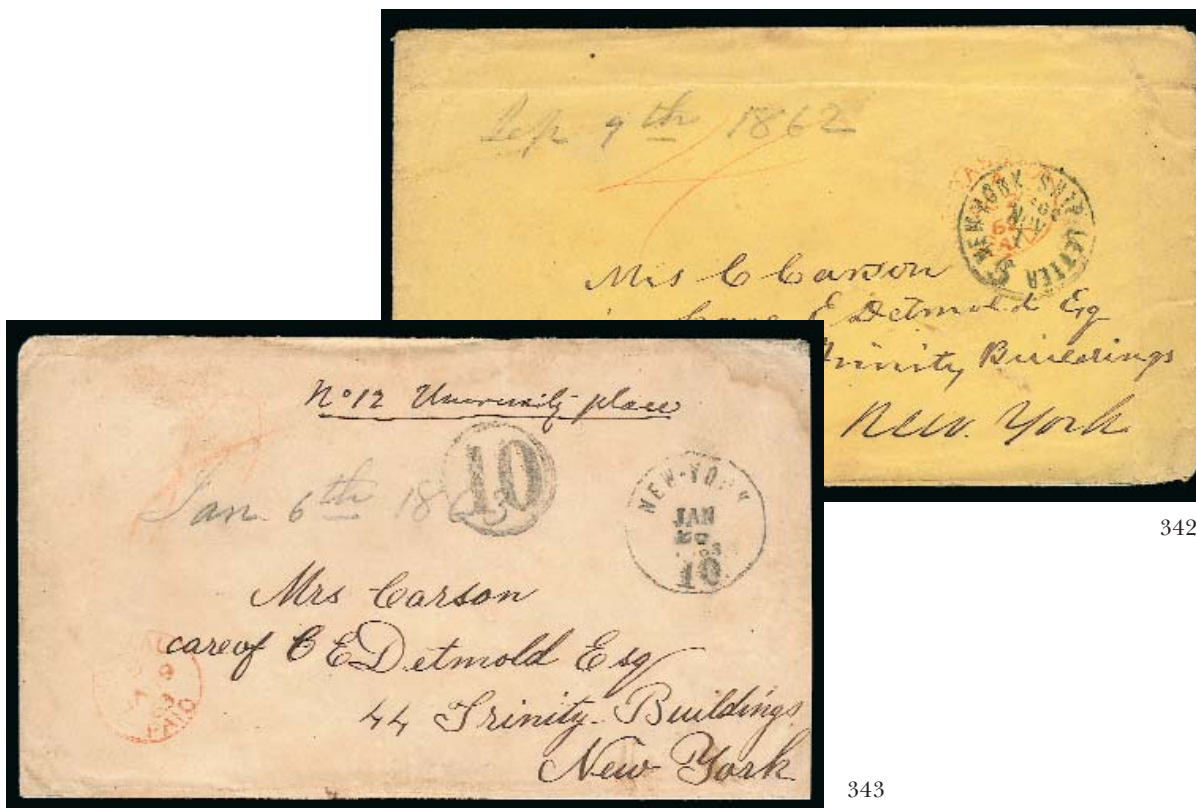 Sep 9th 1862
4
NEW YORK SHIP LETTER
Mrs C Carson
E Detmold Esq
Trinity Buildings
New York
342
No 12 University place
10
Jan. 6th 1863
NEW-YORK
JAN
63
10
Mrs Carson
care of C E Detmold Esq
44 Trinity Buildings
New York
PAID
343